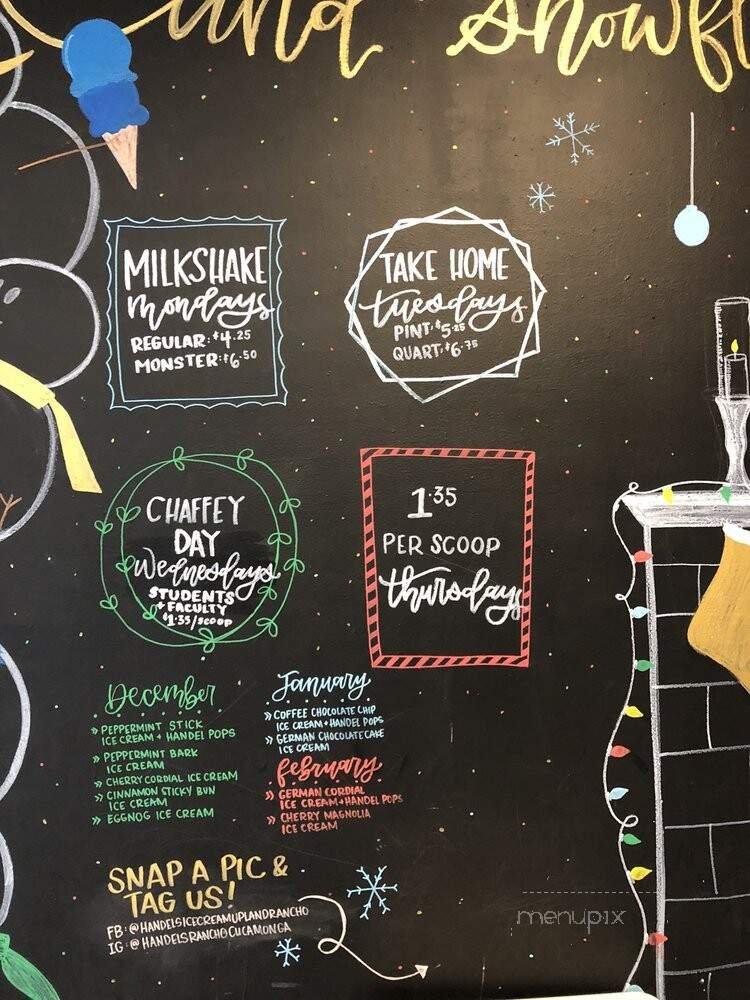 and snowfl
MILKSHAKE
mondays
REGULAR: $4.25
MONSTER: $6.50
TAKE HOME
tuesdays
PINT: $5.25
QUART: $6.75
CHAFFEY
DAY
Wednesdays
STUDENTS
+ FACULTY
$1.35/SCOOP
1.35
PER SCOOP
thursdays
December
» PEPPERMINT STICK
ICE CREAM + HANDEL POPS
» PEPPERMINT BARK
ICE CREAM
» CHERRY CORDIAL ICE CREAM
» CINNAMON STICKY BUN
ICE CREAM
» EGGNOG ICE CREAM
January
» COFFEE CHOCOLATE CHIP
ICE CREAM + HANDEL POPS
» GERMAN CHOCOLATE CAKE
ICE CREAM
february
» GERMAN CORDIAL
ICE CREAM + HANDEL POPS
» CHERRY MAGNOLIA
ICE CREAM
SNAP A PIC &
TAG US!
FB: @HANDELSICECREAMUPLANDRANCHO
IG: @HANDELSRANCHOCUCAMONGA
menupix